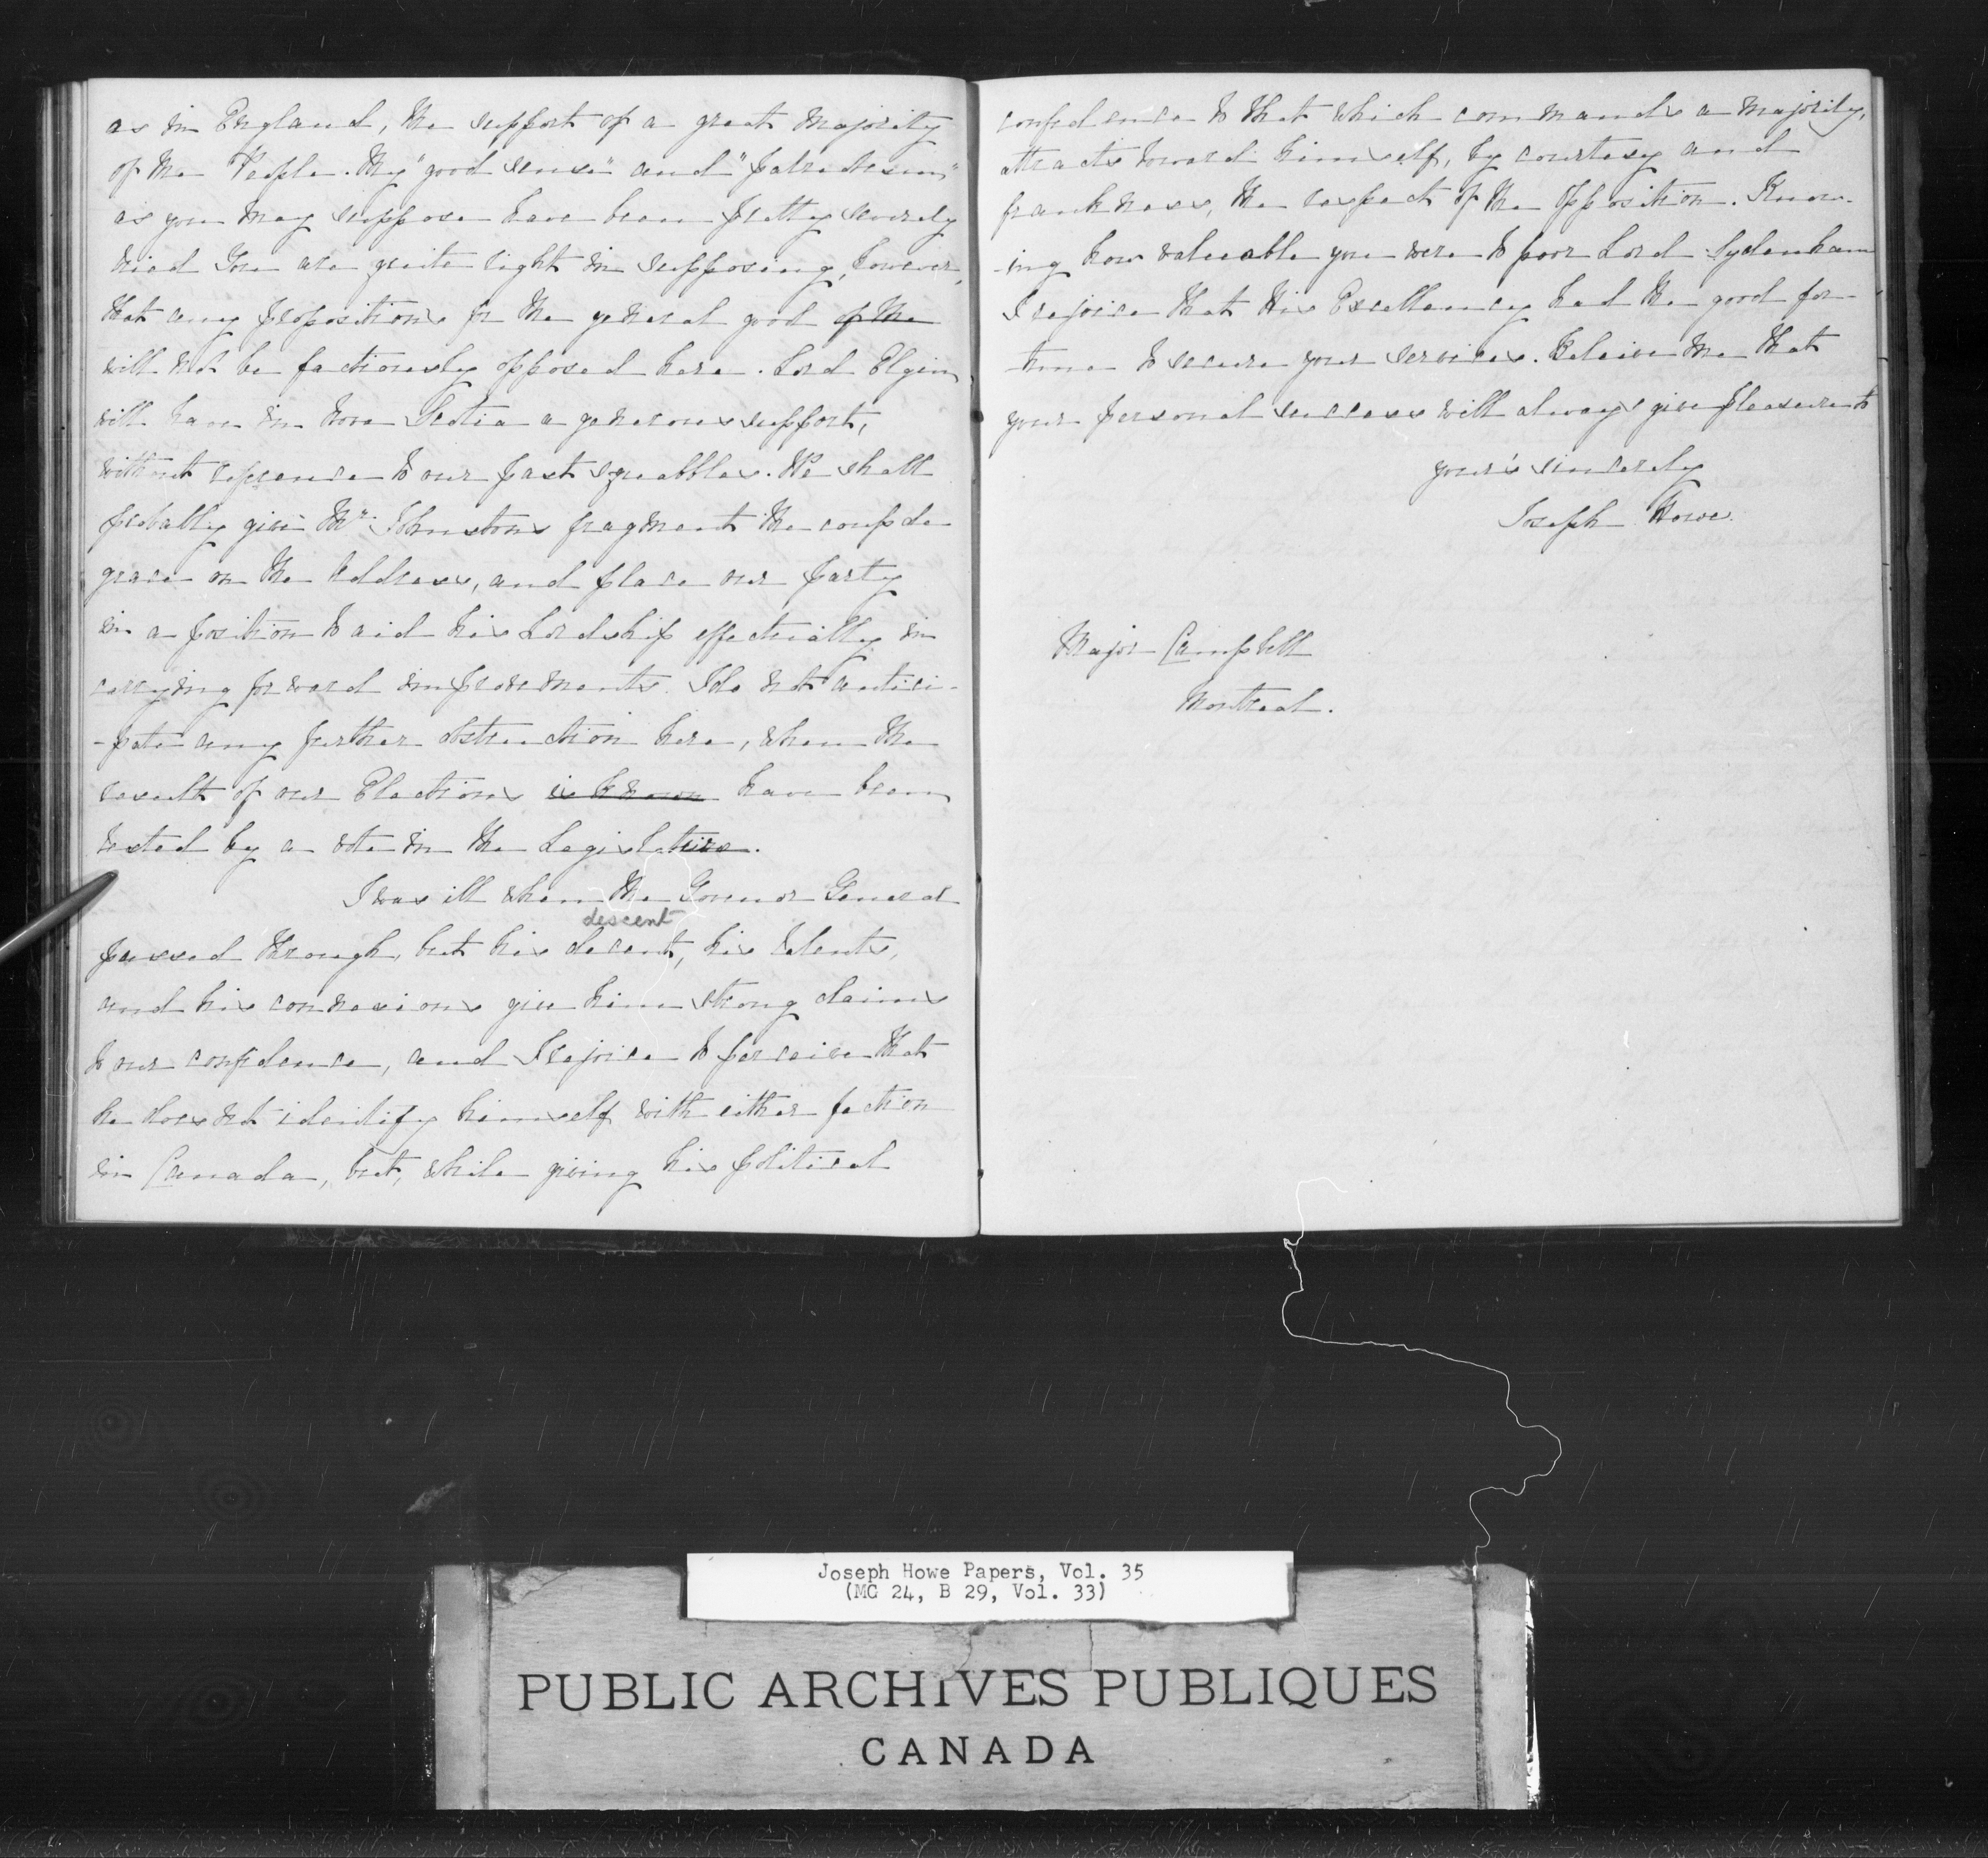 as in England, the support of a great majority
of the People. My "good sense" and "patriotism"
as you may suppose have been pretty severely
tried You are quite right in supposing, however,
that any propositions for the general good of the
will not be factiously opposed here. Lord Elgin
will have in Nova Scotia a generous support,
without reference to our past squabbles. We shall
probably give Mr. Johnstons fragment the coup de
grace on the Address, and place our party
in a position to aid his Lordship effectually in
carrying forward improvements. I do not antici-
-pate any further obstruction here, when the
result of our Elections is known have been
tested by a vote in the Legislature.
I was ill when the Govenor General
descent
passed through, but his decent, his talents,
and his connexions give him strong claims
to our confidence, and I rejoice to perceive that
he does not identify himself with either faction
in Canada, but, while giving his political
confidence to that which commands a majority,
attracts toward himself, by courtesy and
frankness, the respect of the Opposition. Know-
-ing how valuable you were to poor Lord Sydenham
I rejoice that His Excellency had the good for-
-tune to secure your services. Beleive me that
your personal success will always give pleasure to
your's sincerely
Joseph Howe.
Major Campbell
Montreal.
Joseph Howe Papers, Vol. 35
(MG 24, B 29, Vol. 33)
PUBLIC ARCHIVES PUBLIQUES
CANADA